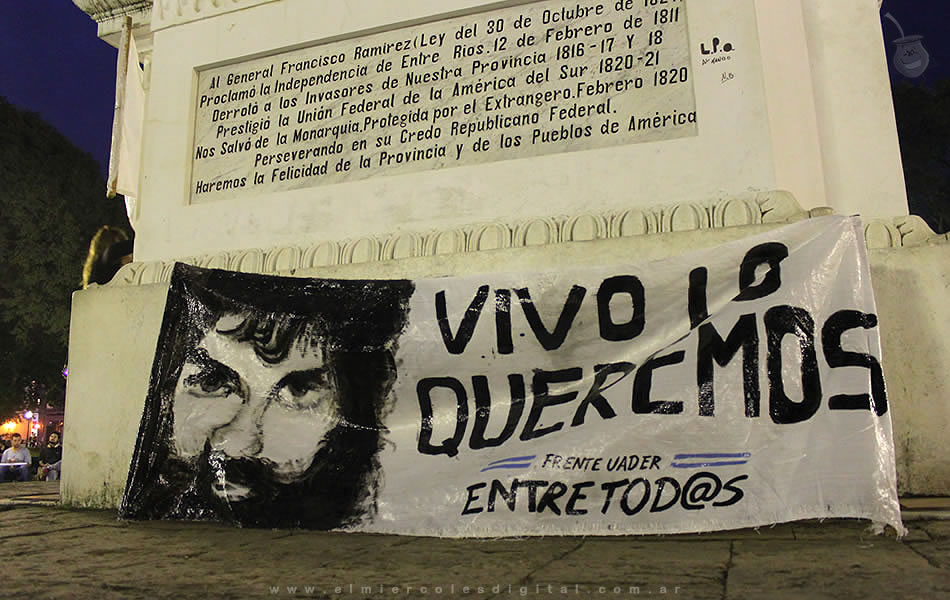 Al General Francisco Ramírez(Ley del 30 de Octubre de 1821)
Proclamó la Independencia de Entre Ríos.12 de Febrero de 1811
Derrotó a los Invasores de Nuestra Provincia 1816-17 Y 18
Prestigió la Unión Federal de la América del Sur 1820-21
Nos Salvó de la Monarquía,Protegida por el Extrangero.Febrero 1820
Perseverando en su Credo Republicano Federal.
Haremos la Felicidad de la Provincia y de los Pueblos de América
L.P.
VIVO LO
QUEREMOS
FRENTE UADER
ENTRE TOD@S
www.elmiercolesdigital.com.ar